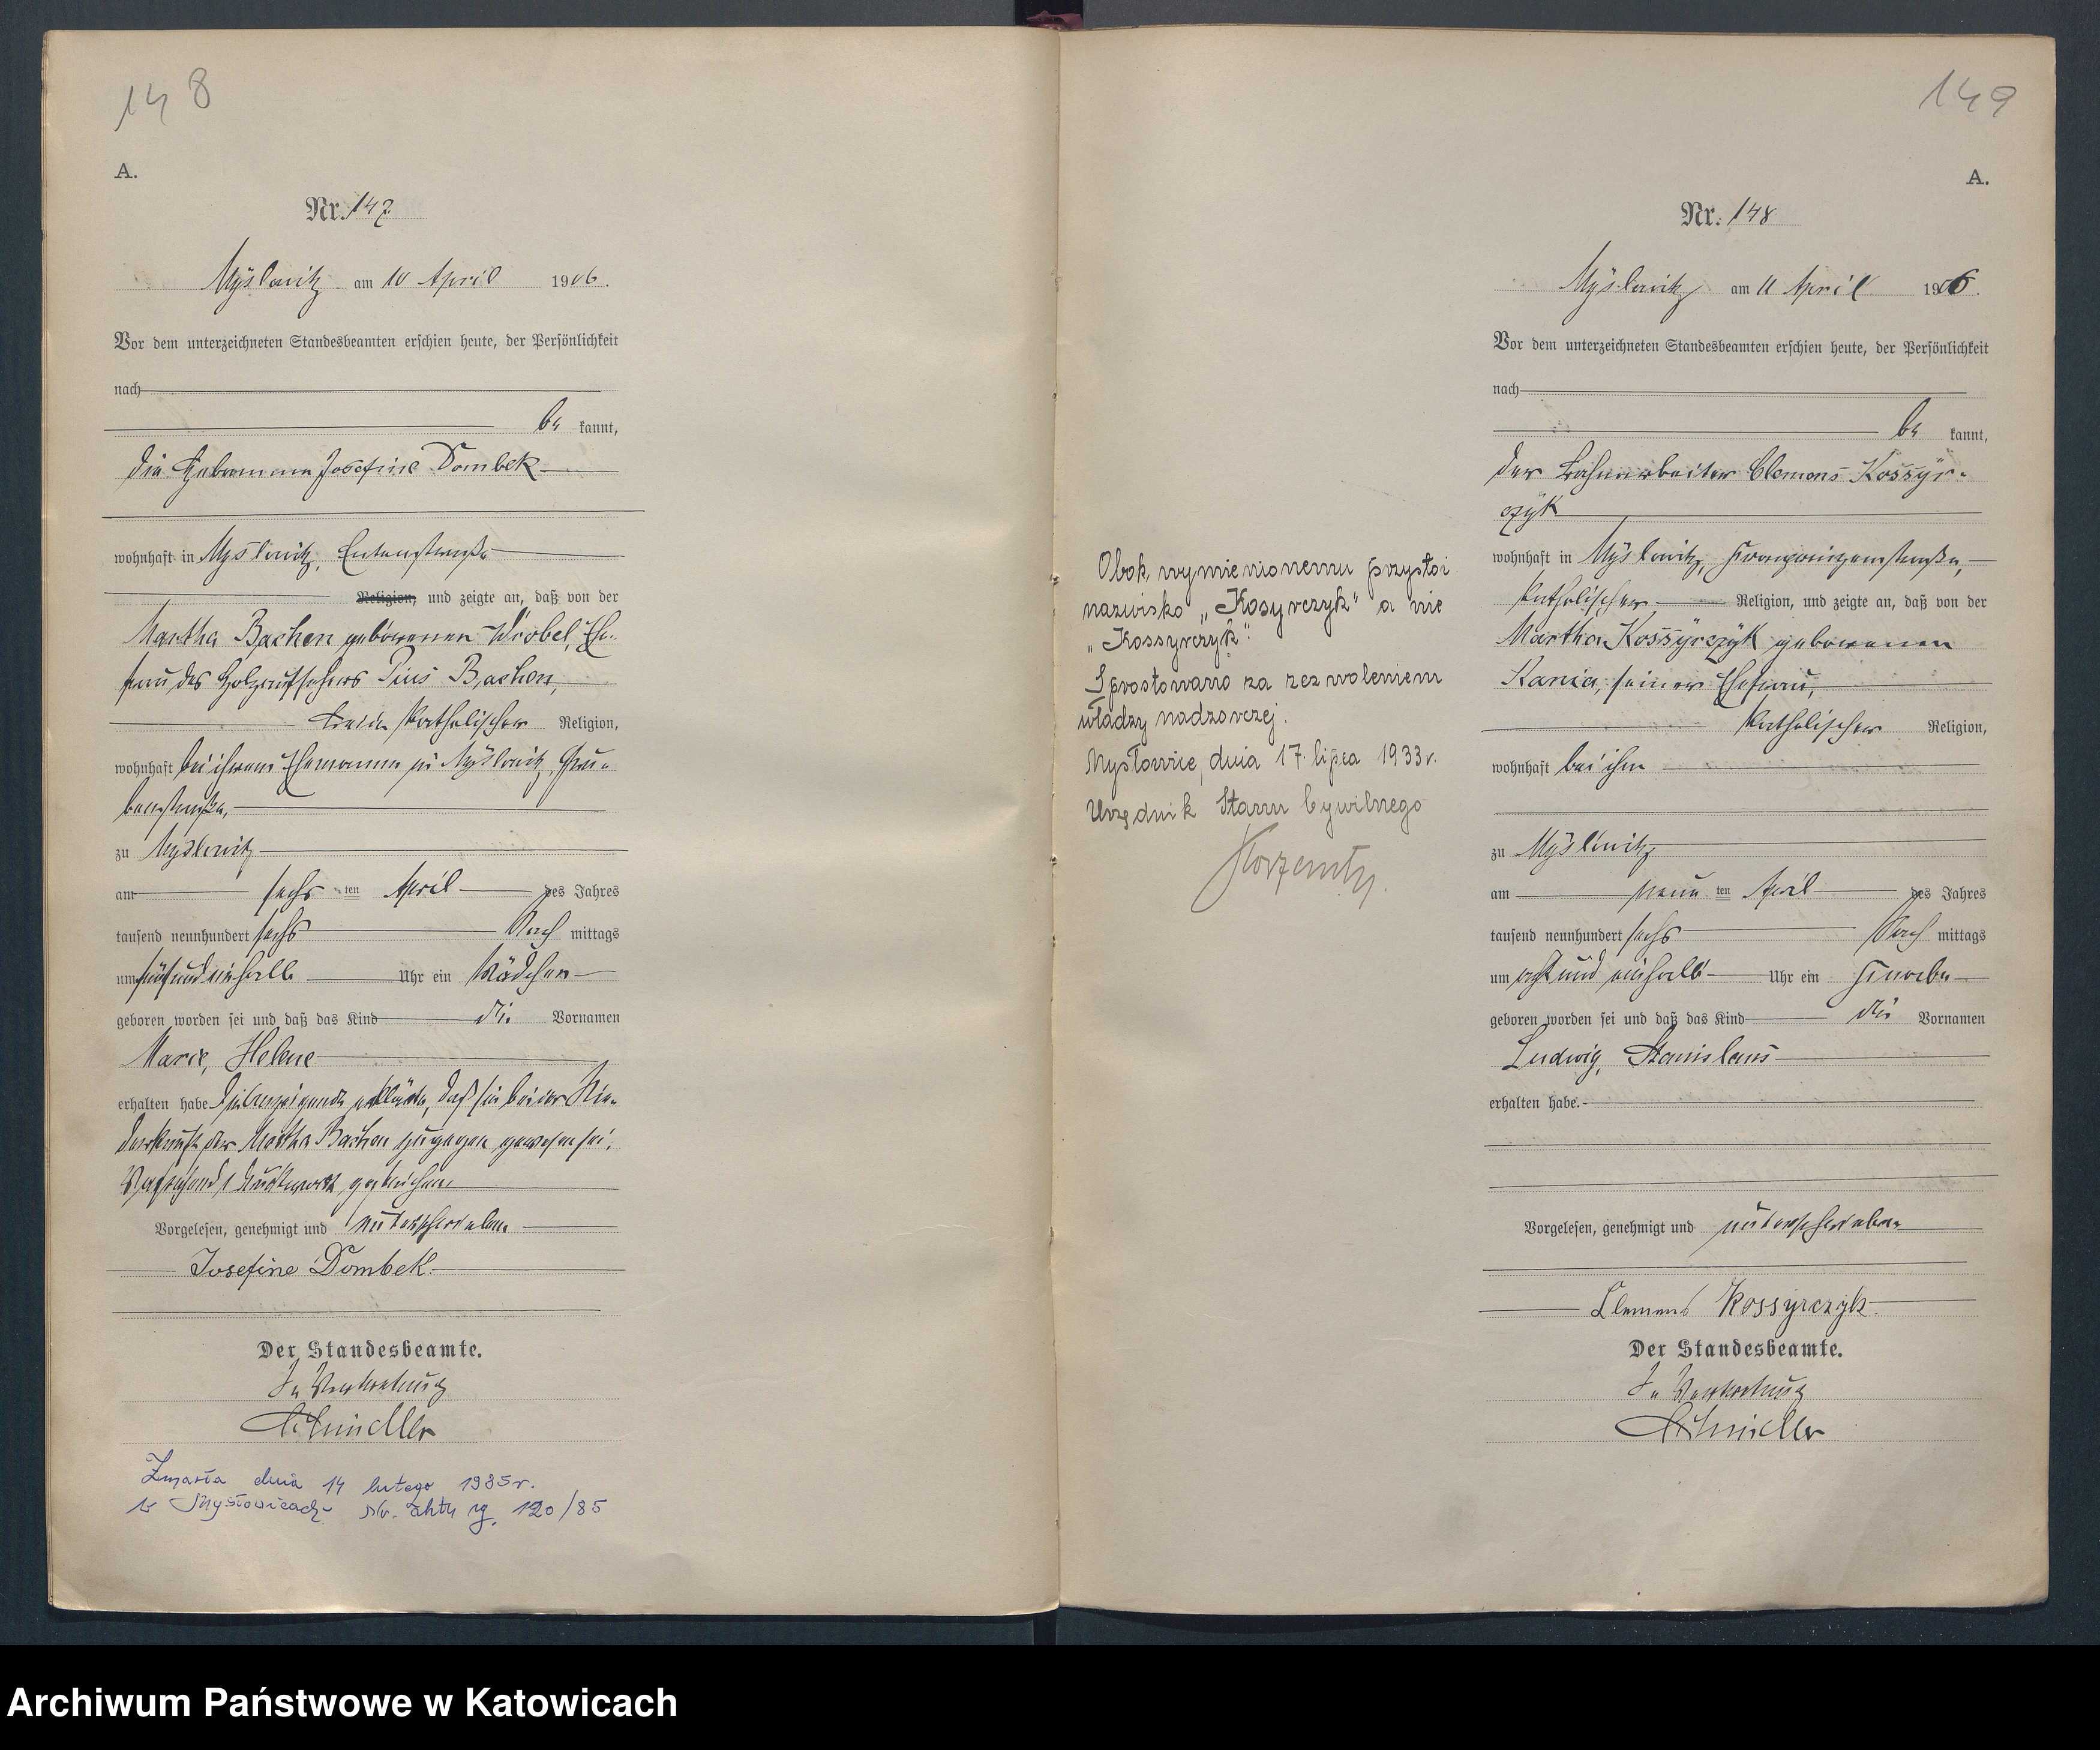 148
A.
Nr. 147
Myslowitz am 10 April 1906.
Vor dem unterzeichneten Standesbeamten erschien heute, der Persönlichkeit
nach
be kannt,
die Hebamme Josefine Dombek
wohnhaft in Myslowitz, Entenstraße
Religion, und zeigte an, daß von der
Martha Bachen geborenen Wrobel, Ehe-
frau des Holzaufsehers Pius Bachen,
beide katholischer Religion,
wohnhaft bei ihrem Ehemann in Myslowitz, Gru-
benstraße,
zu Myslowitz
am sechs ten April des Jahres
tausend neunhundert sechs Nach mittags
um fünf und einhalb Uhr ein Mädchen
geboren worden sei und daß das Kind die Vornamen
Marie, Helene
erhalten habe. Die Anzeigende erklärte, daß sie bei der Nie-
derkunft der Martha Bachen zugegen gewesen sei.
Vorstehend 1 Druckwort gestrichen.
Vorgelesen, genehmigt und unterschrieben
Josefine Dombek.
Der Standesbeamte.
In Vertretung
Zmarła dnia 14 lutego 1985 r.
w Mysłowicach Nr. aktu zg. 120/85
149
A.
Nr. 148
Myslowitz am 11 April 1906.
Vor dem unterzeichneten Standesbeamten erschien heute, der Persönlichkeit
nach
be kannt,
der Bahnarbeiter Clemens Kossyr-
czyk
wohnhaft in Myslowitz,
katholischer Religion, und zeigte an, daß von der
Martha Kossyrczyk geborenen
Kania, seiner Ehefrau,
katholischer Religion,
wohnhaft bei ihm
zu Myslowitz
am neun ten April des Jahres
tausend neunhundert sechs Nach mittags
um acht und einhalb Uhr ein Knabe
geboren worden sei und daß das Kind die Vornamen
Ludwig, Stanislaus
erhalten habe.
Vorgelesen, genehmigt und unterschrieben
Clemens Kossyrczyk
Der Standesbeamte.
In Vertretung
Obok wymienionemu przystoi
nazwisko „Kosyrczyk" a nie
„Kossyrczyk".
Sprostowano za zezwoleniem
władzy nadzorczej.
Mysłowice, dnia 17. lipca 1933 r.
Urzędnik Stanu Cywilnego
Archiwum Państwowe w Katowicach